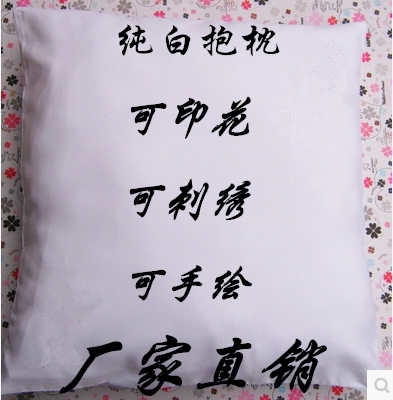 纯白抱枕
可印花
可刺绣
可手绘
厂家直销